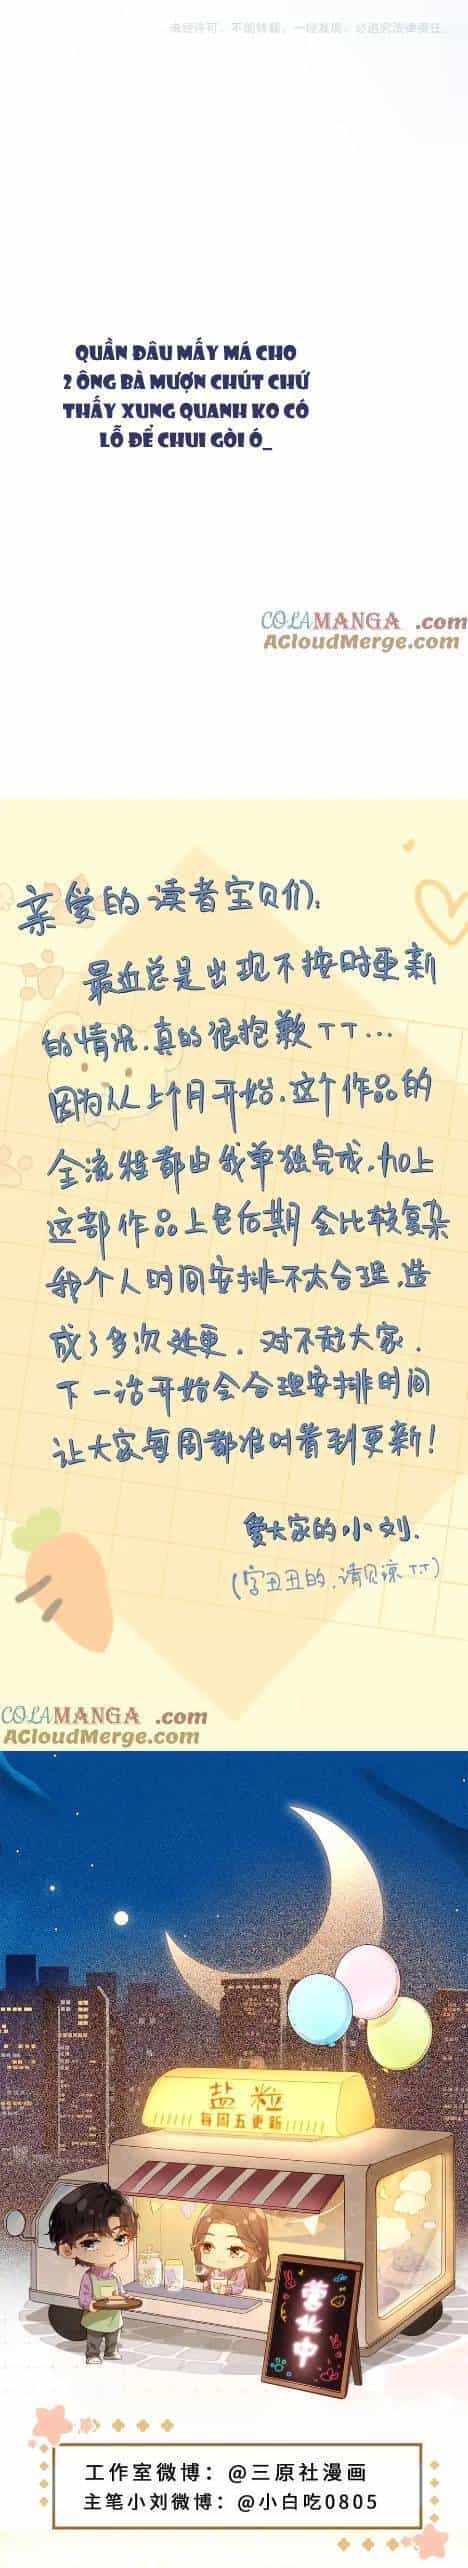 未经许可，不能转载，一经发现，必追究法律责任。
QUẦN ĐÂU MẤY MÁ CHO
2 ÔNG BÀ MƯỢN CHÚT CHỨ
THẤY XUNG QUANH KO CÓ
LỖ ĐỂ CHUI GÒI Ó_
COLAMANGA.com
ACloudMerge.com
亲爱的读者宝贝们：
最近总是出现不按时更新
的情况，真的很抱歉TT...
因为从上个月开始，这个作品的
全流程都由我单独完成，加上
这部作品上色后期会比较复杂
我个人时间安排不太合理，造
成了多次延更，对不起大家，
下一话开始会合理安排时间
让大家每周都准时看到更新！
爱大家的小刘.
(字丑丑的，请见谅TT)
COLAMANGA.com
ACloudMerge.com
盐粒
每周五更新
营业中
工作室微博：@三原社漫画
主笔小刘微博：@小白吃0805